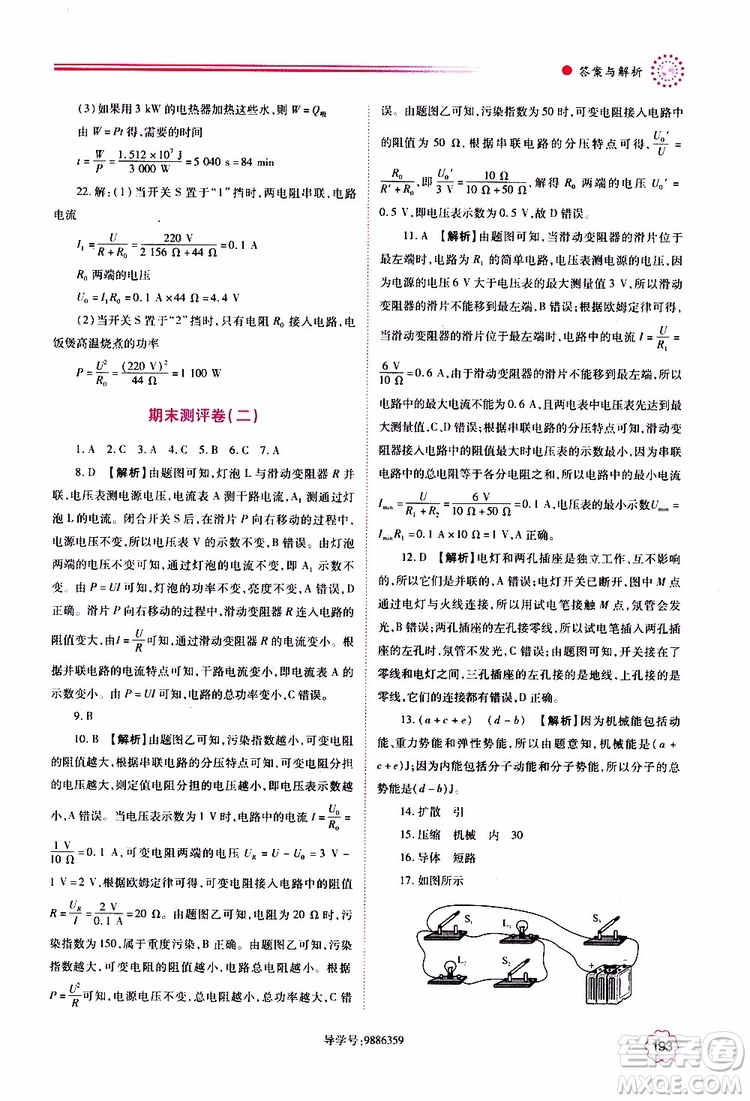 答案与解析
(3)如果用 3 kW 的电热器加热这些水,则 W=Q吸
由 W=Pt 得,需要的时间
t=W/P=1.512×10⁷ J/3 000 W=5 040 s=84 min
22.解:(1)当开关 S 置于“1”挡时,两电阻串联,电路
电流
I₁=U/(R+R₀)=220 V/(2 156 Ω+44 Ω)=0.1 A
R₀ 两端的电压
U₀=I₁R₀=0.1 A×44 Ω=4.4 V
(2)当开关 S 置于“2”挡时,只有电阻 R₀ 接入电路,电
饭煲高温烧煮的功率
P=U²/R₀=(220 V)²/44 Ω=1 100 W
期末测评卷(二)
1.A 2.C 3.C 4.C 5.B 6.C 7.A
8.D 【解析】由题图可知,灯泡 L 与滑动变阻器 R 并
联,电压表测电源电压,电流表 A 测干路电流,A₁ 测过灯
泡 L 的电流。闭合开关 S 后,滑片 P 向右移动的过程中,
电源电压不变,则电压表 V 示数不变,B 错误。由于灯泡
两端的电压不变,通过灯泡的电流不变,则电流表 A₁ 示数
不变。由 P=UI 可知,灯泡的功率不变,亮度不变,A 错误,D
正确。滑片 P 向右移动的过程中,滑动变阻器 R 连入电路的
阻值变大,由 I=U/R 可知,通过变阻器的电流变小;根
据并联电路的电流特点可知,干路电流变小,电流表 A 示数
变小。由 P=UI 可知,电路的总功率变小,C 错误。
9.B
10.B 【解析】由题图乙可知,污染指数越小,可变电阻
的阻值越大,根据串联电路的分压特点可知,可变电阻分担
的电压越大,则定值电阻分担的电压越小,即电压表示数
越小,A 错误。当电压表示数为 1 V 时,电路中的电流 I=U₀/R₀=
1 V/10 Ω=0.1 A,可变电阻两端的电压 U_R=U-U₀=3 V-
1 V=2 V。根据欧姆定律可得,可变电阻接入电路中的阻值
R=U_R/I=2 V/0.1 A=20 Ω,由题图乙可知,此时对应的污染
指数为 150,属于重度污染,B 正确。由题图乙可知,污染
指数越小,可变电阻的阻值越大,电路总电阻越大。根据
P=U²/R可知,电源电压不变,总电阻越大,电功率越小,C 错
误。由题图乙可知,污染指数为 50 时,可变电阻接入电路中
的阻值为 50 Ω,根据串联电路的分压特点可得,U₀′/U=
R₀/(R′+R₀),即U₀′/3 V=10 Ω/(10 Ω+50 Ω),解得 R₀ 两端的电压 U₀′=
0.5 V,即电压表示数为 0.5 V,故 D 错误。
11.A 【解析】由题图可知,当滑动变阻器的滑片位于
最左端时,电路为 R₁ 的简单电路,电压表测电源的电压,因
为电源的电压 6 V 大于电压表的最大测量值 3 V,所以滑动
变阻器的滑片不能移到最左端,B 错误。根据欧姆定律可得,
当滑动变阻器的滑片位于最左端时,电路中的电流 I=U/R₁=
6 V/10 Ω=0.6 A,由于滑动变阻器的滑片不能在最左端,所以
电路中的最大电流不能为 0.6 A,且电压表先达到最大
测量值,C、D 错误。根据题意可知,当滑动变阻器接入
电路中的阻值最大时电压表的示数最小,因为串联
电路中的总电阻等于各分电阻之和,所以,电路中的最小电流
Imin=U/(R₁+R₂)=6 V/(10 Ω+50 Ω)=0.1 A,电压表的最小示数 Umin=
IminR₁=0.1 A×10 Ω=1 V,A 正确。
12.D 【解析】电灯和两孔插座是独立工作、互不影响
的,所以它们是并联的,A 错误;电灯开关已断开,图中 M 点
通过电灯与火线连接,所以用试电笔接触 M 点,氖管会发
光,B 错误;两孔插座的左孔接零线,所以试电笔插入两孔插
座的左孔,氖管不发光,C 错误;由题图可知,开关接在了
零线和电灯之间,两孔插座的左孔接零线,三孔插座的左孔接
零线,所以,它们的连接有错误,D 正确。
13.(a+c+e) (d-b) 【解析】因为机械能包括动
能、重力势能和弹性势能,所以,由题意知,机械能为(a+
c+e)J;因为内能包括分子动能和分子势能,所以分子的总
势能是(d-b)J。
14.扩散 引
15.压缩 机械 内 30
16.导体 短路
17.如图所示
S₁
L₁
L₂
S₂
导学号:9886359
193
答案圈
MXQE.COM